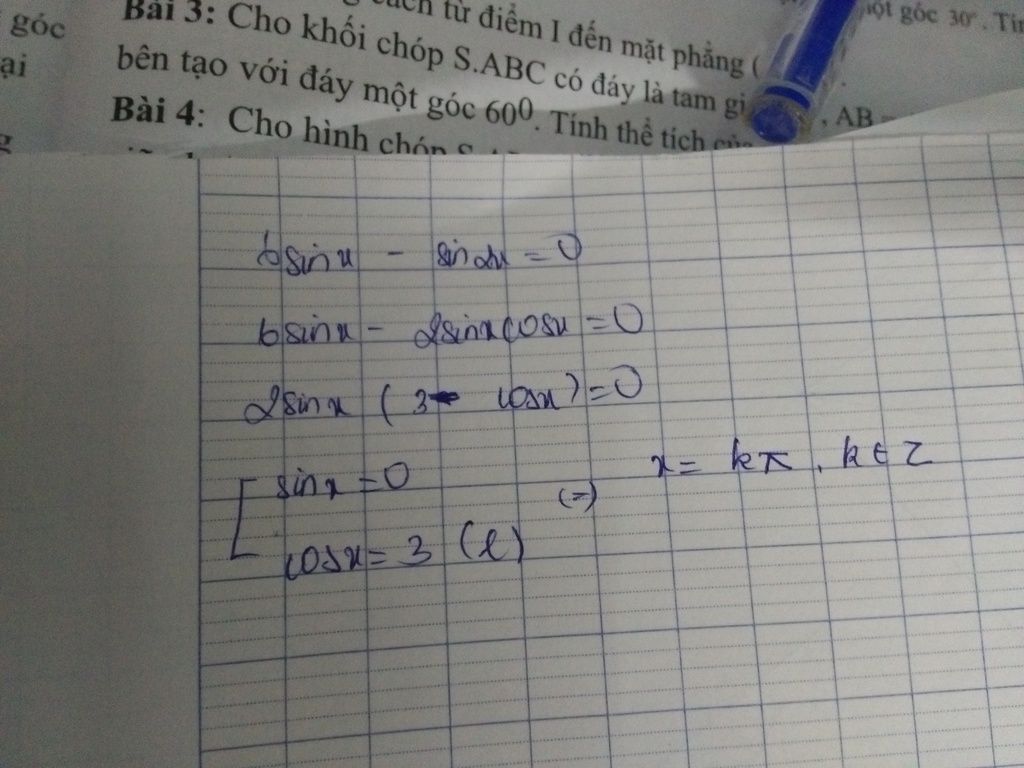 góc
ại
cách từ điểm I đến mặt phẳng (
một góc 30°. Tín
Bài 3: Cho khối chóp S.ABC có đáy là tam gi , AB
bên tạo với đáy một góc 60⁰. Tính thể tích của
Bài 4: Cho hình chóp
6sinx - sin2x = 0
6sinx - 2sinxcosx = 0
2sinx (3 - cosx) = 0
[ sinx = 0
cosx = 3 (l) (=) x = kπ, k ∈ Z